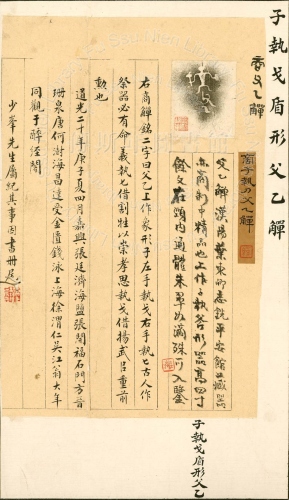 子執戈盾形父乙觶
商父乙觶
商子執刀父乙觶
父乙觶漢陽葉東卿志詵平安館藏器
亦商彝中精品也上作子執各形器高四寸
餘文在頸内通體朱翠如滿殊可入鑒
右商觶銘二字曰父乙上作家形子左手執戈右手執匕古人作
祭器必有命義執匕借割牲以崇孝思執戈借揚武呂重前
勲也
道光二十年庚子夏四月嘉興張廷濟海鹽張開福石門方
珊泉唐何澍海昌達受金匱錢泳上海徐渭仁吴江翁大年
同觀于醉經閣
少峯先生屬紀其事因書册尾
子執戈盾形父乙